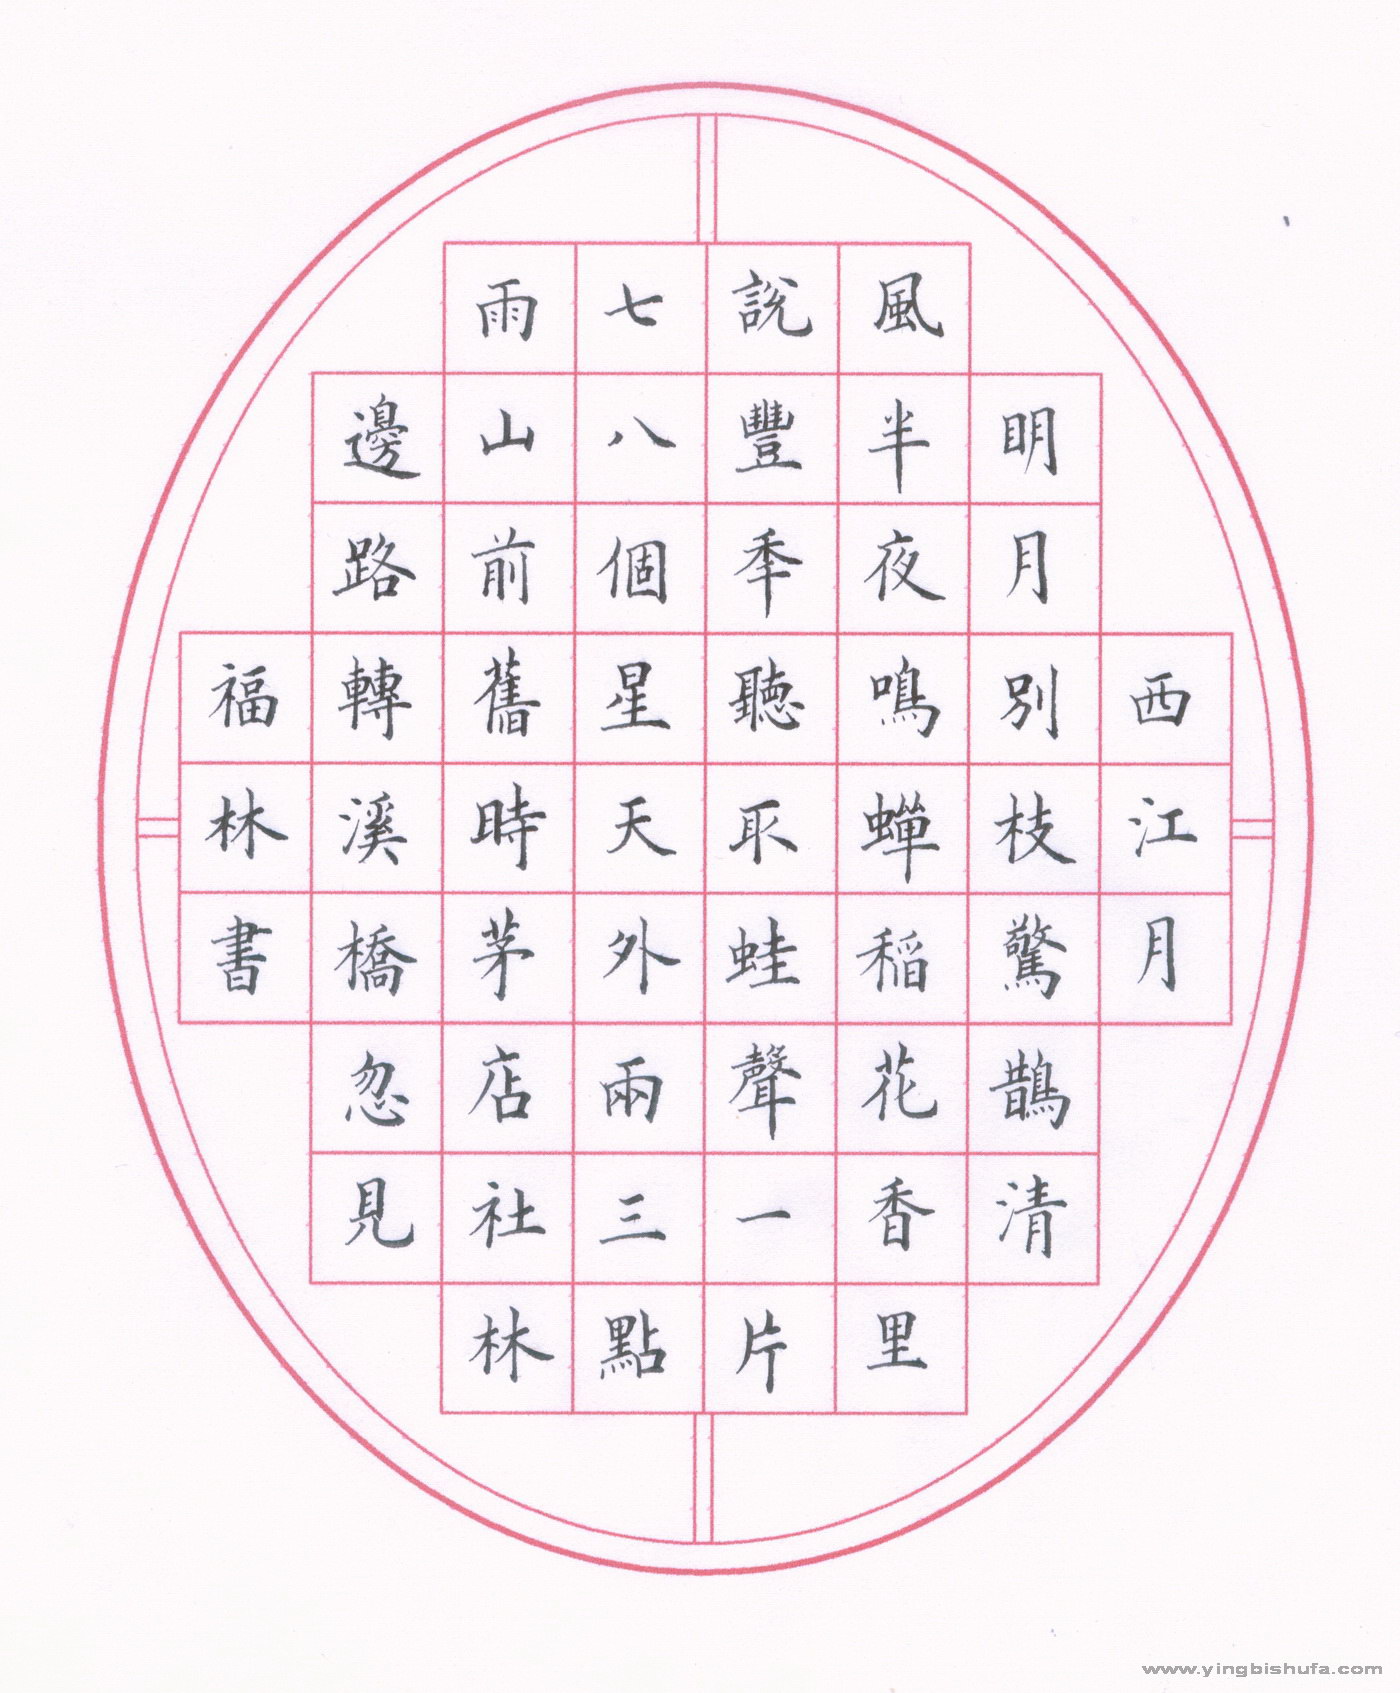 西江月
明月別枝驚鵲清
風半夜鳴蟬稻花香里
說豐秊聽取蛙聲一片
七八個星天外兩三點
雨山前舊時茅店社林
邊路轉溪橋忽見
福林書
www.yingbishufa.com